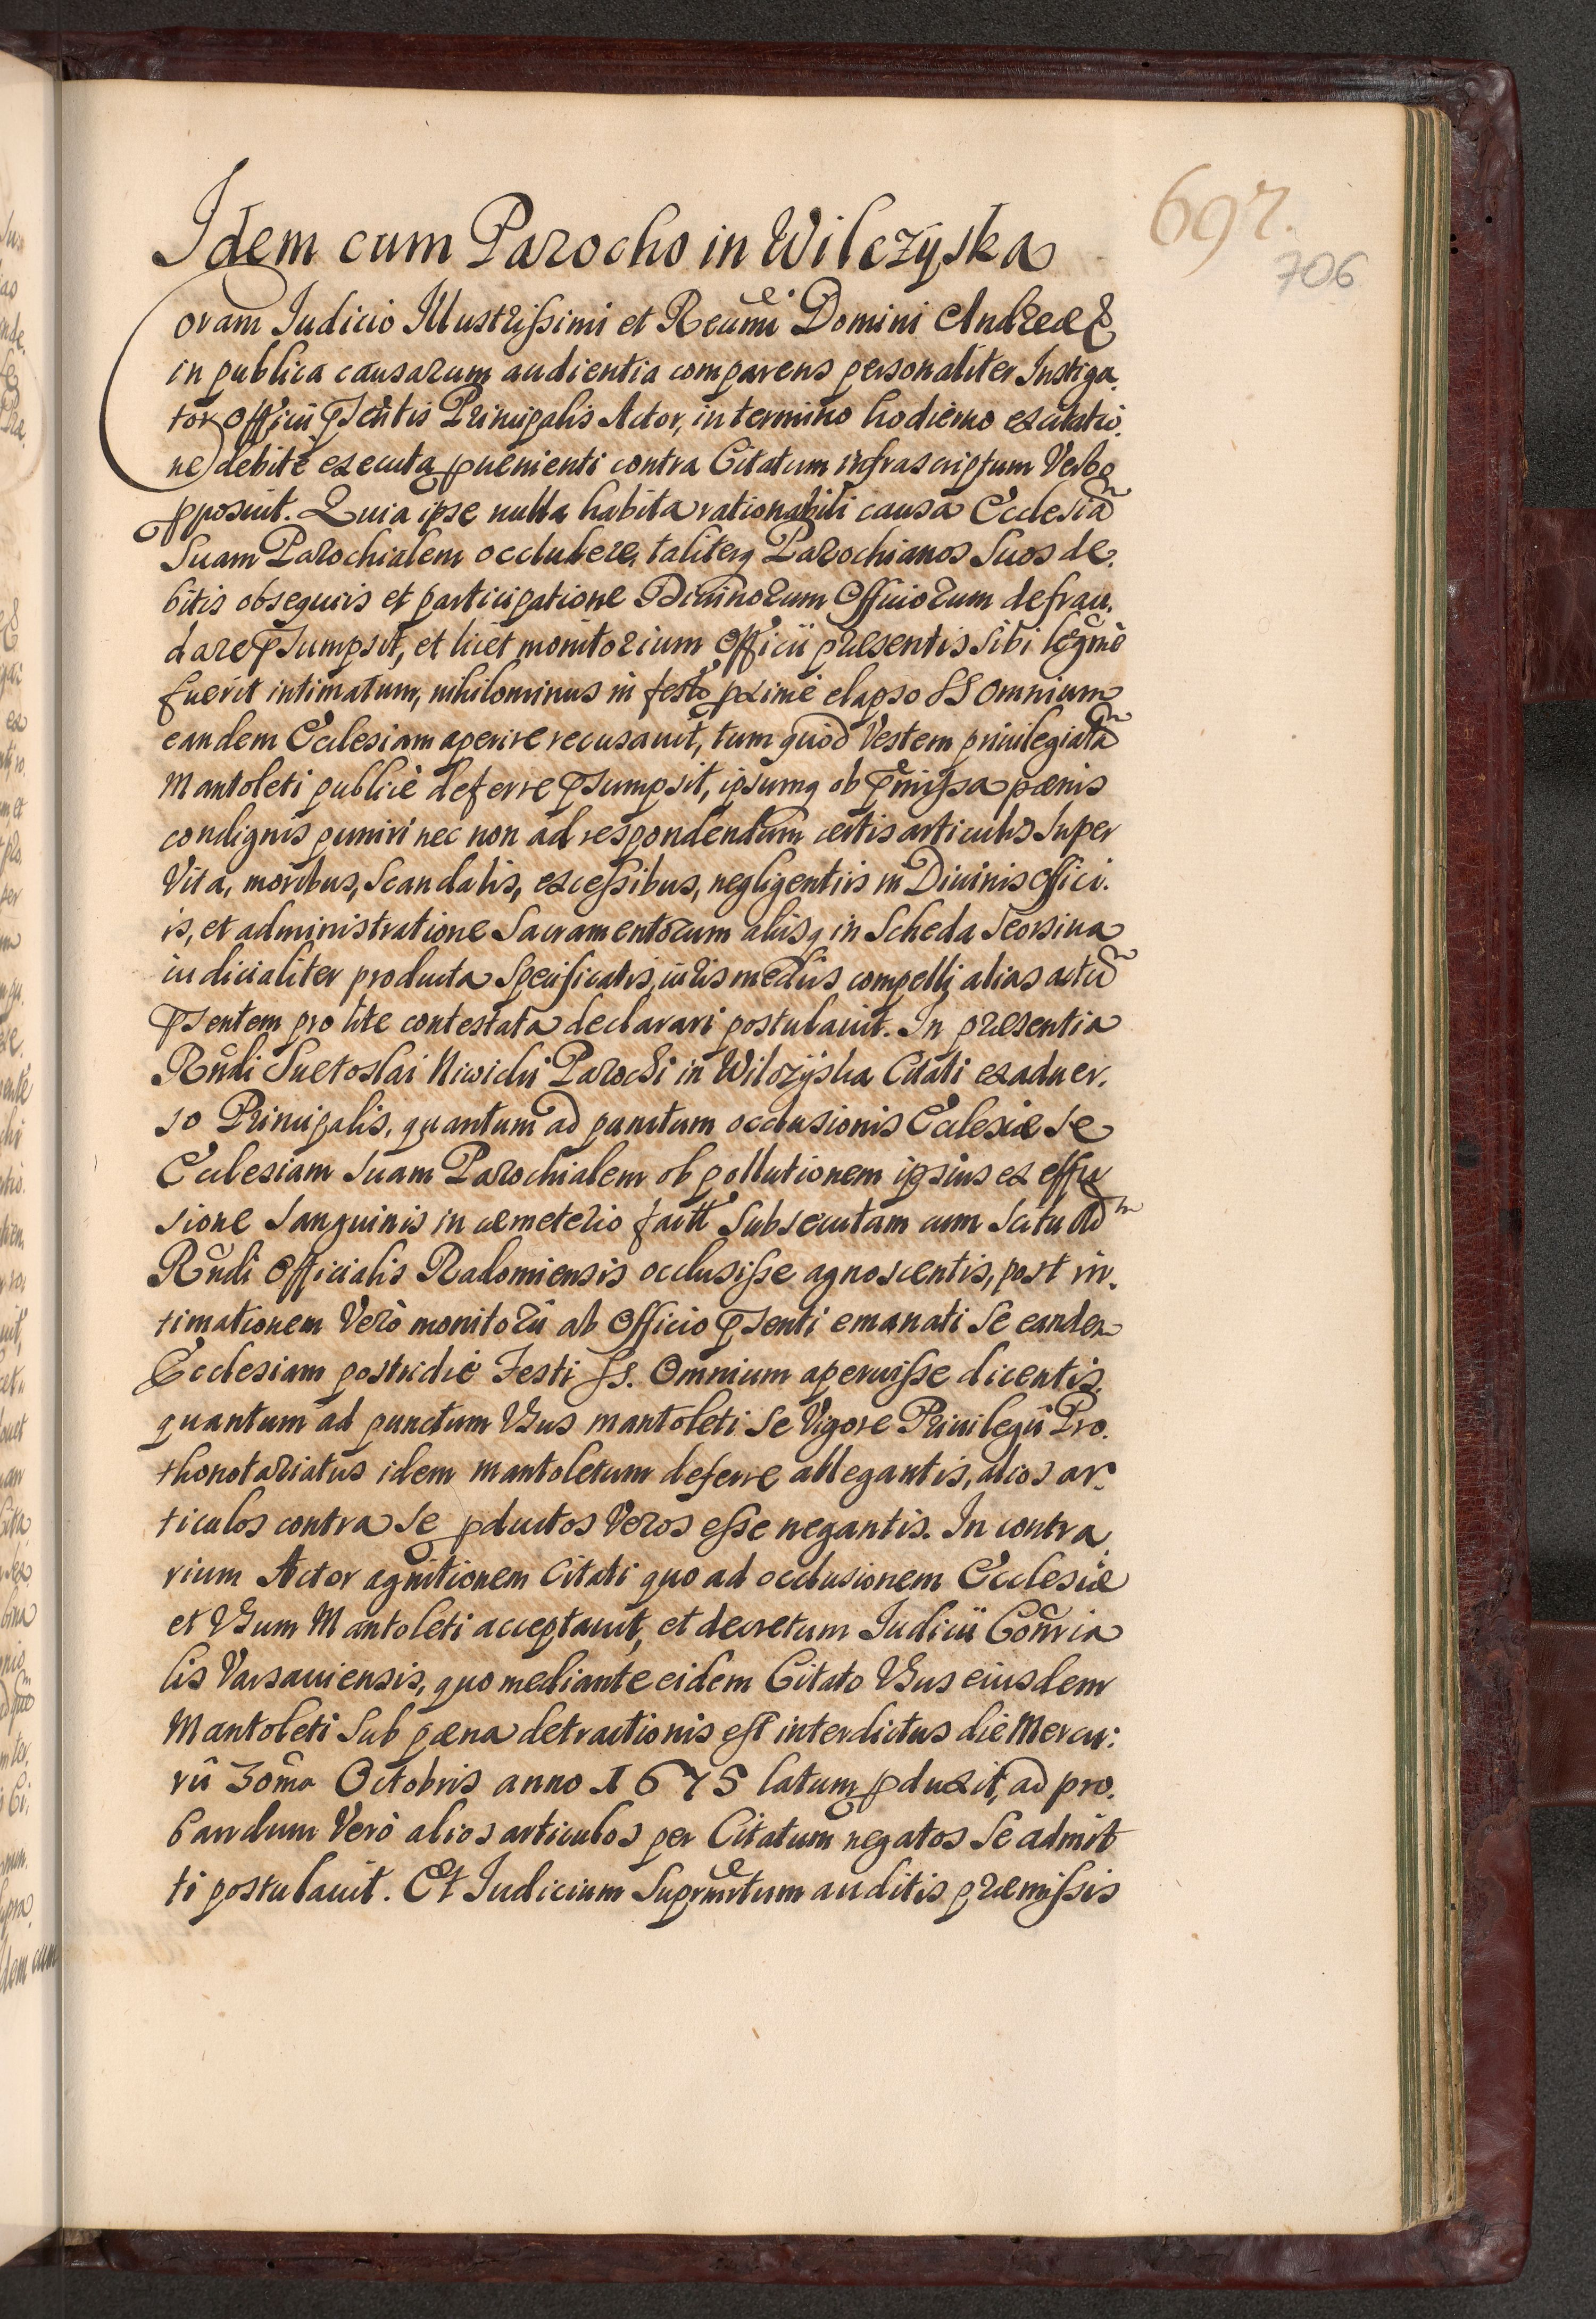 697.
706
Idem cum Parocho in Wilczyska
Coram Iudicio Illustrissimi et Reũmi Domini Andreæ &
in publica causarum audientia comparens personaliter Instiga,
tor Officii p̃sentis Principalis Actor, in termino hodierno ex citatio,
ne debite executa pueñienti contra Citatum infrascriptum Verbo
pposuit. Quia ipse nulla habita rationabili causa Ecclesiã
Suam Parochialem occludere, taliterq Parochianos Suos de,
bitis obsequiis et participatione Diuinorum Officiorum defrau,
dare p̃sumpsit, et licet monitorium Officii præsentis Sibi legm̃e
fuerit intimatum, nihilominus in festo pximè elapso SS Omnium
eandem Ecclesiam aperire recusauit, tum quod Vestem priuilegiatã
Mantoleti publicè deferre p̃sumpsit, ipsumq ob p̃missa pœnis
condignis puniri nec non ad respondendum certis articulis Super
Vita, moribus, Scandalis, excessibus, negligentiis in Diuinis Offici,
is, et administratione Sacramentorum aliisq in Scheda Seorsiua
iudicialiter producta Specificatis, iuris mediis compelli, alias actũ
p̃sentem pro lite contestata declarari postulauit. In præsentia
Rñdi Suetoslai Niwicki Parochi in Wilczyska Citati ex aduer,
so Principalis, quantum ad punctum occlusionis Ecclesiæ Se
Ecclesiam Suam Parochialem ob pollutionem ipsius ex effu
sione Sanguinis in cæmeterio factã Subsecutam cum Scitu Adm
Rñdi Officialis Radomiensis occlusisse agnoscentis, post in,
timationem Verò monitorii ab Officio p̃senti emanati Se eandem
Ecclesiam postridie Festi SS. Omnium aperuisse dicentis,
quantum ad punctum Vsus mantoleti Se Vigore Priuilegii Pro,
thonotariatus idem mantoletum deferre allegantis, alios ar,
ticulos contra Se pductos Veros esse negantis. In contra,
rium Actor agnitionem Citati quo ad occlusionem Ecclesiæ
et Vsum Mantoleti acceptauit, et decretum Iudicii Coñria
lis Varsauiensis, quo mediante eidem Citato Vsus eiusdem
Mantoleti Sub pœna detractionis est interdictus die Mercu:
rii 30ma Octobris anno 1675 latum pduxit, ad pro,
bandum Verò alios articulos per Citatum negatos Se admit
ti postulauit. Et Iudicium Supr̃mtum auditis præmissis